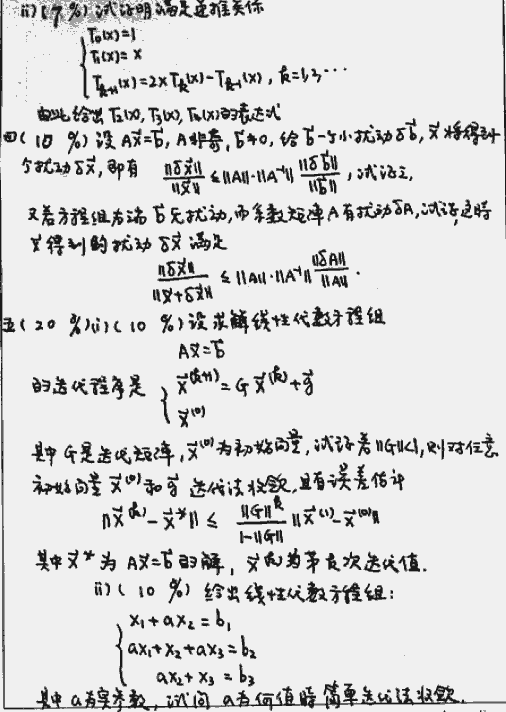 ii) (7%) 试证明满足递推关系
T₀(x)=1
T₁(x)=x
T_{k+1}(x)=2xT_k(x)-T_{k-1}(x), k=1,2,…
由此给出T₂(x), T₃(x), T₄(x)的表达式
四(10%) 设Ax⃗=b⃗, A非奇, b⃗≠0, 给b⃗一个小扰动δb⃗, x⃗将得到
个扰动δx⃗, 即有 ‖δx⃗‖/‖x⃗‖ ≤ ‖A‖·‖A⁻¹‖ ‖δb⃗‖/‖b⃗‖, 试证之,
又若方程组右端b⃗无扰动, 而系数矩阵A有扰动δA, 试证这时
x⃗得到的扰动δx⃗满足
‖δx⃗‖/‖x⃗+δx⃗‖ ≤ ‖A‖·‖A⁻¹‖ ‖δA‖/‖A‖.
五(20%) i) (10%) 设求解线性代数方程组
Ax⃗=b⃗
的迭代程序是 x⃗^{(k+1)}=Gx⃗^{(k)}+g⃗
x⃗^{(0)}
其中G是迭代矩阵, x⃗^{(0)}为初始向量, 试证若‖G‖<1, 则对任意
初始向量x⃗^{(0)}和g⃗迭代法收敛, 且有误差估计
‖x⃗^{(k)}-x⃗*‖ ≤ ‖G‖^k/(1-‖G‖) ‖x⃗^{(1)}-x⃗^{(0)}‖
其中x⃗*为Ax⃗=b⃗的解, x⃗^{(k)}为第k次迭代值.
ii) (10%) 给出线性代数方程组:
x₁+ax₂=b₁
ax₁+x₂+ax₃=b₂
ax₂+x₃=b₃
其中a为实参数, 试问a为何值时简单迭代法收敛.